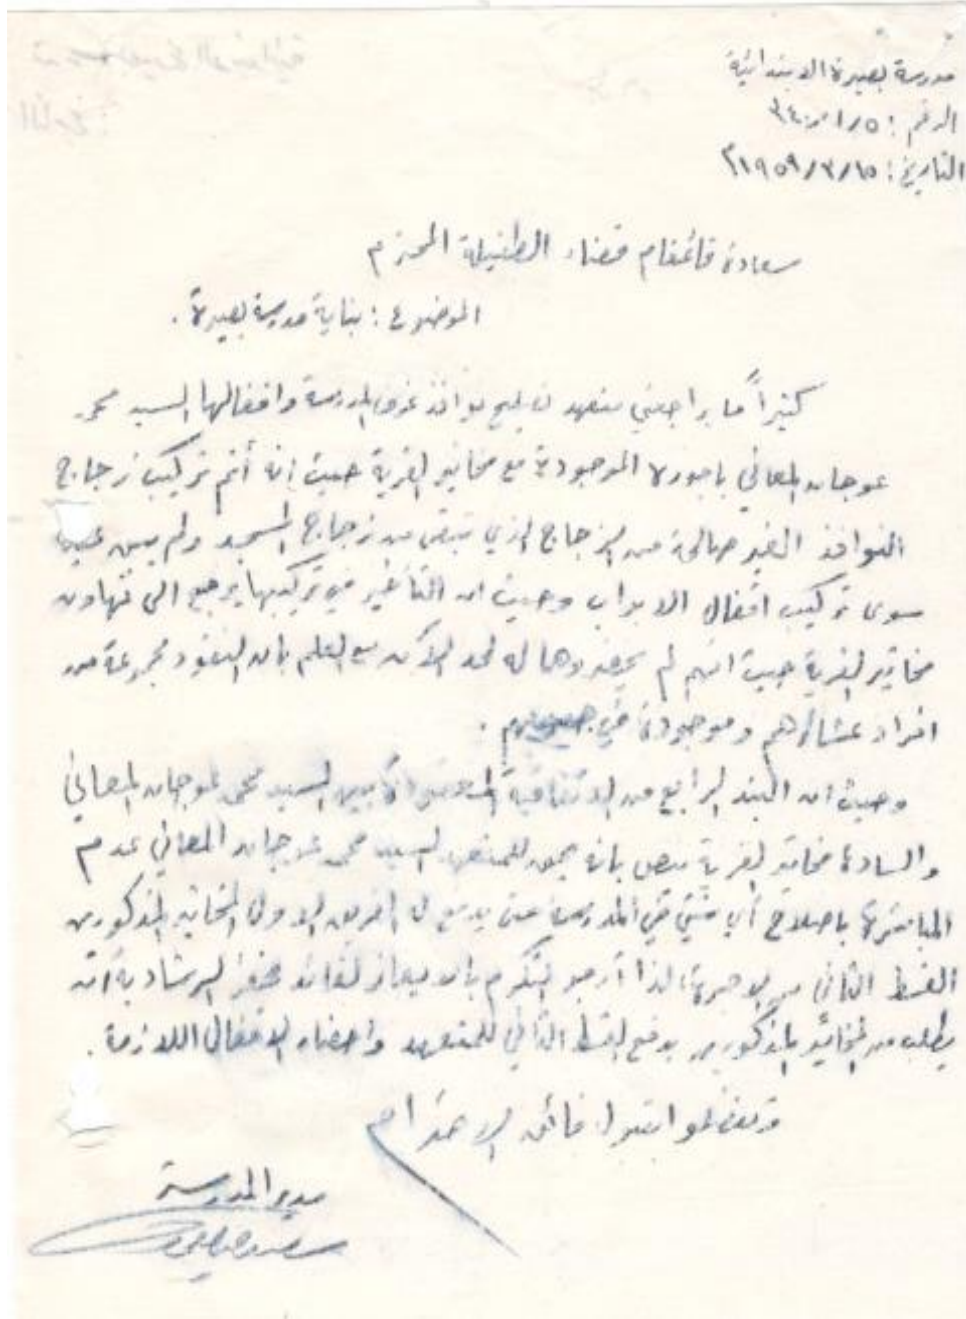 مدرسة بصيرة الابتدائية
الرقم :
التاريخ : ١٩٥٩/٣/١٥
سعادة قائمقام قضاء الطفيلة المحترم
الموضوع : بناية مدرسة بصيرة .
كثيراً ما يراجعني متعهد نوافذ غرف المدرسة واقفالها السيد محمد
عوجان المعاني الموجودة مع مخاتير القرية حيث انه أتم تركيب زجاج
النوافذ الغير صالحة من الزجاج الذي تبقى من زجاج المسجد ولم يبق عليه
سوى تركيب اقفال الابواب وحيث ان التأخير في تركيبها يرجع الى تهاون
مخاتير القرية حيث انهم لم يحضروها له لحد الآن مع العلم بان النقود مجموعة من
افراد عشائرهم وموجودة في .
وحيث ان البند الرابع من الاتفاقية بين السيد محمد عوجان المعاني
والسادة مخاتير القرية ينص بانه يحق للمتعهد السيد محمد عوجان المعاني عدم
المباشرة باصلاح أي شيء في المدرسة حتى يدفع له الفريق الاول المخاتير المذكورين
القسط الثاني من الاجرة، لذا أرجو التكرم بان يعاز لقائد مخفر الرشادية أن
يطلب من المخاتير المذكورين بدفع القسط الثاني للمتعهد واحضار الاقفال اللازمة .
وتفضلوا بقبول فائق الاحترام
مدير المدرسة